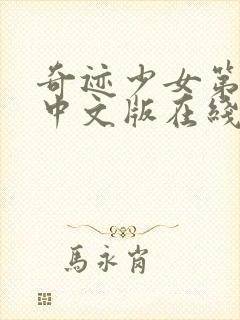 奇迹少女第
中文版在线
馬永肖